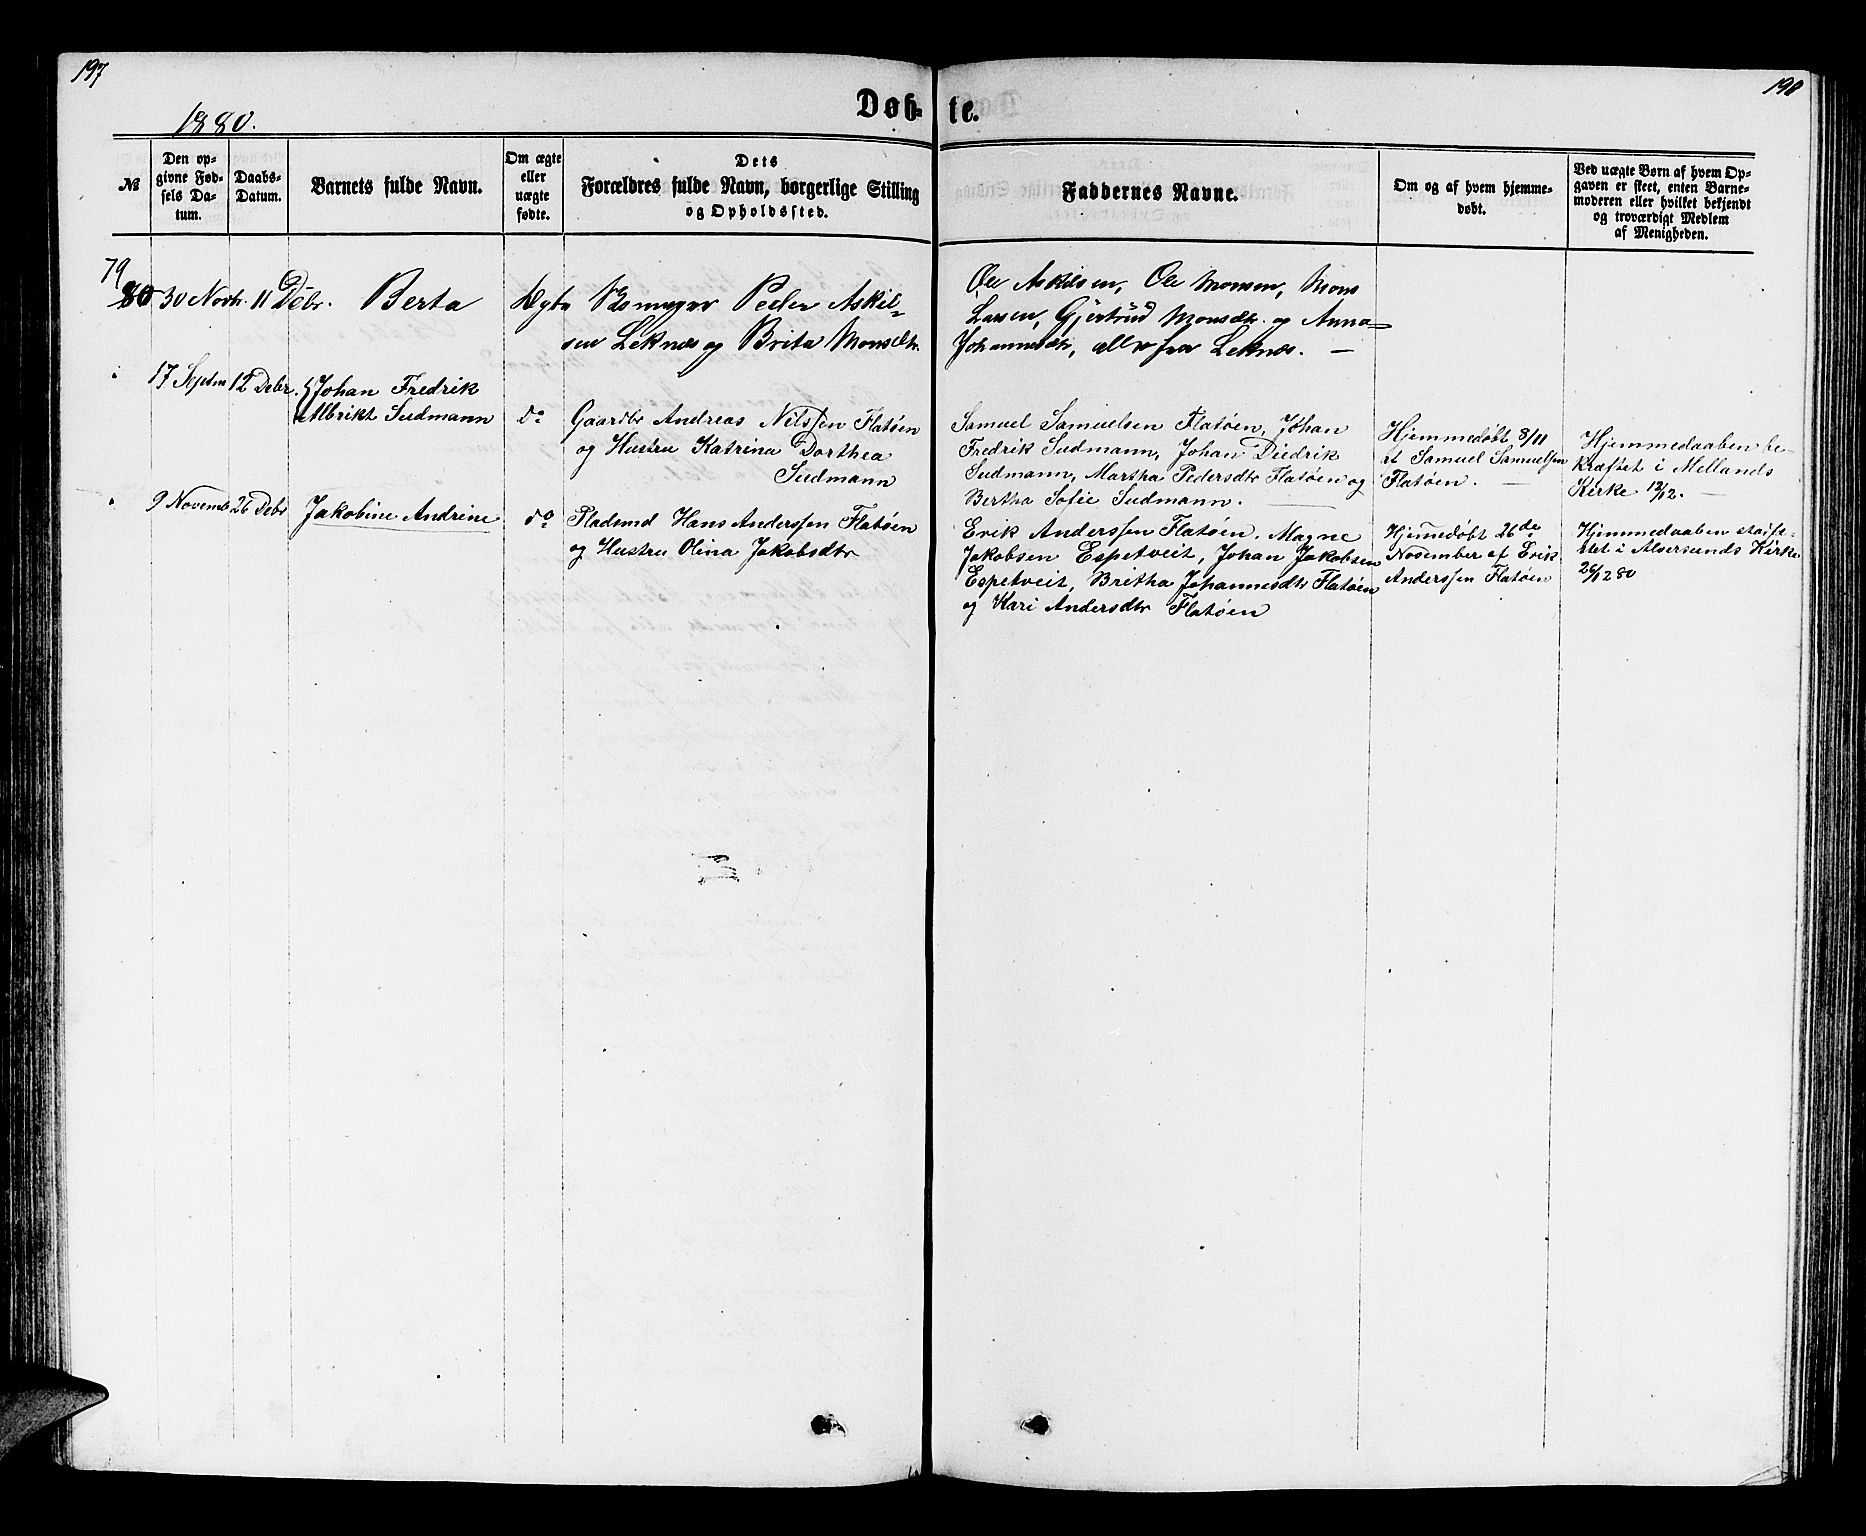 197
198
1880.
Døb- te.
№
Den op-
givne Fød-
sels Da-
tum.
Daabs-
Datum.
Barnets fulde Navn.
Om ægte
eller
uægte
fødte.
Dets
Forældres fulde Navn, borgerlige Stilling
og Opholdssted.
Faddernes Navne.
Om og af hvem hjemme-
døbt.
Ved uægte Børn af hvem Op-
gaven er skeet, enten Barne-
moderen eller hvilket bekjendt
og troværdigt Medlem
af Menigheden.
79
80 30 Novb. 11 Debr. Berta Ægte Peder Askil-
sen Leknes og Brita Monsdtr.
Ole Askilsen, Ole Monsen, Mons
Larsen, Gjertrud Monsdtr. og Anna
Johannesdtr, alle fra Leknes. —
17 Septbr 12 Debr. Johan Fredrik
Albrikt Sudmann do Gaardbr Andreas Nilssen Flatøen
og Hustru Katrina Dorthea
Sudmann
Samuel Samuelsen Flatøen, Johan
Fredrik Sudmann, Johan Diedrik
Sudmann, Martha Pedersdtr Flatøen og
Bertha Sofie Sudmann. —
Hjemmedøbt 8/11
af Samuel Samuelsen
Flatøen. —
Hjemmedaaben be-
kræftet i Mellands
Kirke 12/12. —
9 Novemb 26 Debr Jakobine Andrine do Pladsmd Hans Anderssen Flatøen
og Hustru Olina Jakobsdtr
Erik Anderssen Flatøen. Magne
Jakobsen Espetveit, Johan Jakobsen
Espetveit, Britha Johannesdtr Flatøen
og Kari Andersdtr Flatøen
Hjemedøbt 26de
November af Erik
Anderssen Flatøen
Hjemmedaaben stadfæ-
stet i Alversunds Kirke
26/12 80